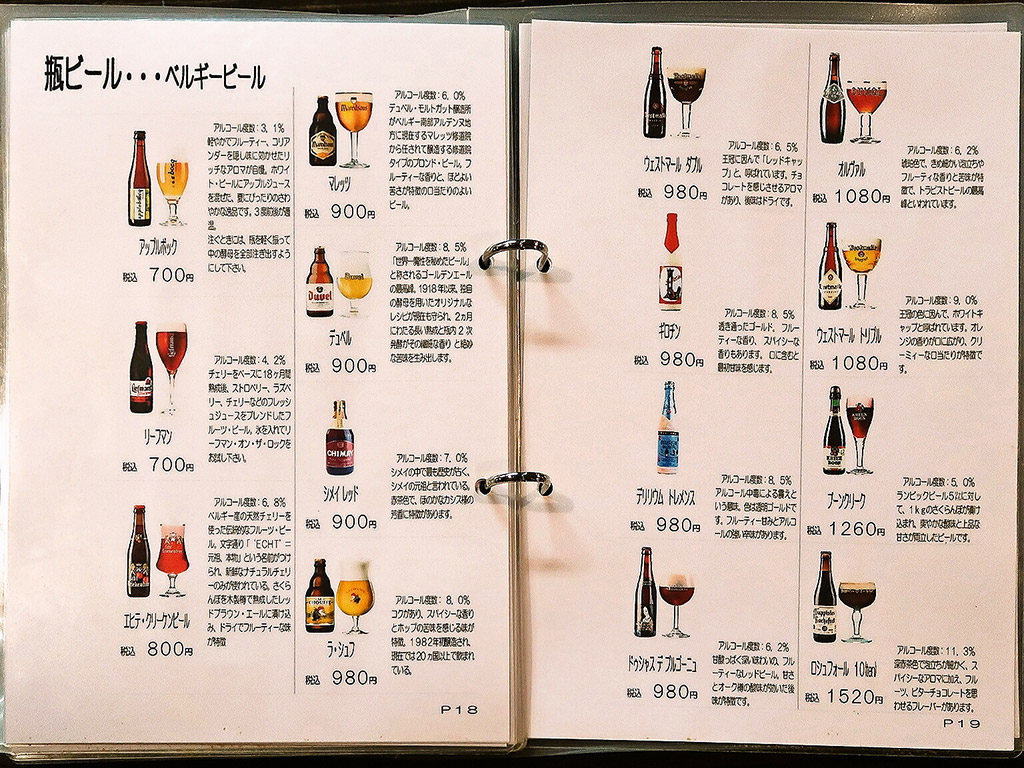 瓶ビール・・・ベルギービール
アルコール度数：3，1%
軽やかでフルーティー、コリア
ンダーを隠し味に効かせたリ
ッチなアロマが自慢。ホワイ
ト・ビールにアップルジュース
を混ぜた、夏にぴったりのさわ
やかな逸品です。3度前後が適
温。
注ぐときには、瓶を軽く振って
中の酵母を全部注ぎ出すよう
にして下さい。
アップルボック
税込 700円
アルコール度数：4，2%
チェリーをベースに18ヶ月間
熟成後、ストロベリー、ラズベ
リー、チェリーなどのフレッシ
ュジュースをブレンドしたフ
ルーツ・ビール。氷を入れてリ
ーフマン・オン・ザ・ロックを
お試し下さい。
リーフマン
税込 700円
アルコール度数：6，8%
ベルギー産の天然チェリーを
使った伝統的なフルーツ・ビー
ル。文字通り「‘ECHT’＝
元祖、本物」という名前がつけ
られ、新鮮なナチュラルチェリ
ーのみが使われている。さくら
んぼを木製樽で熟成したレッ
ドブラウン・エールに漬け込
み、ドライでフルーティーな味
が特徴
エヒテ・クリーケンビール
税込 800円
アルコール度数：6，0%
デュベル・モルトガット醸造所
がベルギー南部アルデンヌ地
方に現存するマレッツ修道院
から任されて醸造する修道院
タイプのブロンド・ビール。フ
ルーティーな香りと、ほどよい
苦さが特徴の口当たりのよい
ビール。
マレッツ
税込 900円
アルコール度数：8，5%
「世界一魔性を秘めたビール」
と称されるゴールデンエール
の最高峰。1918年以来、独自
の酵母を用いたオリジナルな
レシピが現在も守られ、2ヵ月
にわたる長い熟成と瓶内2次
発酵がその繊細な香りと絶妙
な苦味を生み出します。
Duvel
デュベル
税込 900円
アルコール度数：7，0%
シメイの中で最も歴史が古く、
シメイの元祖と言われている。
赤茶色で、ほのかなカシス様の
芳香に特徴があります。
CHIMAY
シメイ レッド
税込 900円
アルコール度数：8，0%
コクがあり、スパイシーな香り
とホップの苦味を感じる味が
特徴。1982年初醸造され、
現在では20ヵ国以上で飲まれ
ている。
ラ・シュフ
税込 980円
P18
アルコール度数：6，5%
王冠に因んで「レッドキャッ
プ」と、呼ばれています。チョ
コレートを感じさせるアロマ
があり、後味はドライです。
ウェストマール ダブル
税込 980円
アルコール度数：8，5%
透き通ったゴールド。フルー
ティーな香り、スパイシーな
香りもあります。口に含むと
最初甘味を感じます。
ギロチン
税込 980円
アルコール度数：8，5%
アルコール中毒による震えと
いう意味。色は透明ゴールドで
す。フルーティー甘みとアルコ
ールの強い辛味があります。
デリリウム トレメンス
税込 980円
アルコール度数：6，2%
甘酸っぱく深い味わいの、フル
ーティーなレッドビール。甘さ
とオーク樽の酸味が効いた後
味が特徴です。
ドゥシャス デ ブルゴーニュ
税込 980円
アルコール度数：6，2%
琥珀色で、きめ細かい泡立ちや
フルーティな香りと苦味が特
徴で、トラピストビールの最高
峰といわれています。
オルヴァル
税込 1080円
アルコール度数：9，0%
王冠の色に因んで、ホワイトキ
ャップと呼ばれています。オレ
ンジの香りが口に広がり、クリ
ーミィーな口当たりが特徴で
す。
ウェストマール トリプル
税込 1080円
アルコール度数：5，0%
ランビックビール5㍑に対し
て、1kgのさくらんぼが漬け
込まれ、爽やかな酸味と上品な
甘さが両立したビールです。
ブーンクリーク
税込 1260円
アルコール度数：11，3%
深赤茶色で泡立ちが細かく、ス
パイシーなアロマに加え、フル
ーツ、ビターチョコレートを思
わせるフレーバーがあります。
ロシュフォール 10
税込 1520円
P19